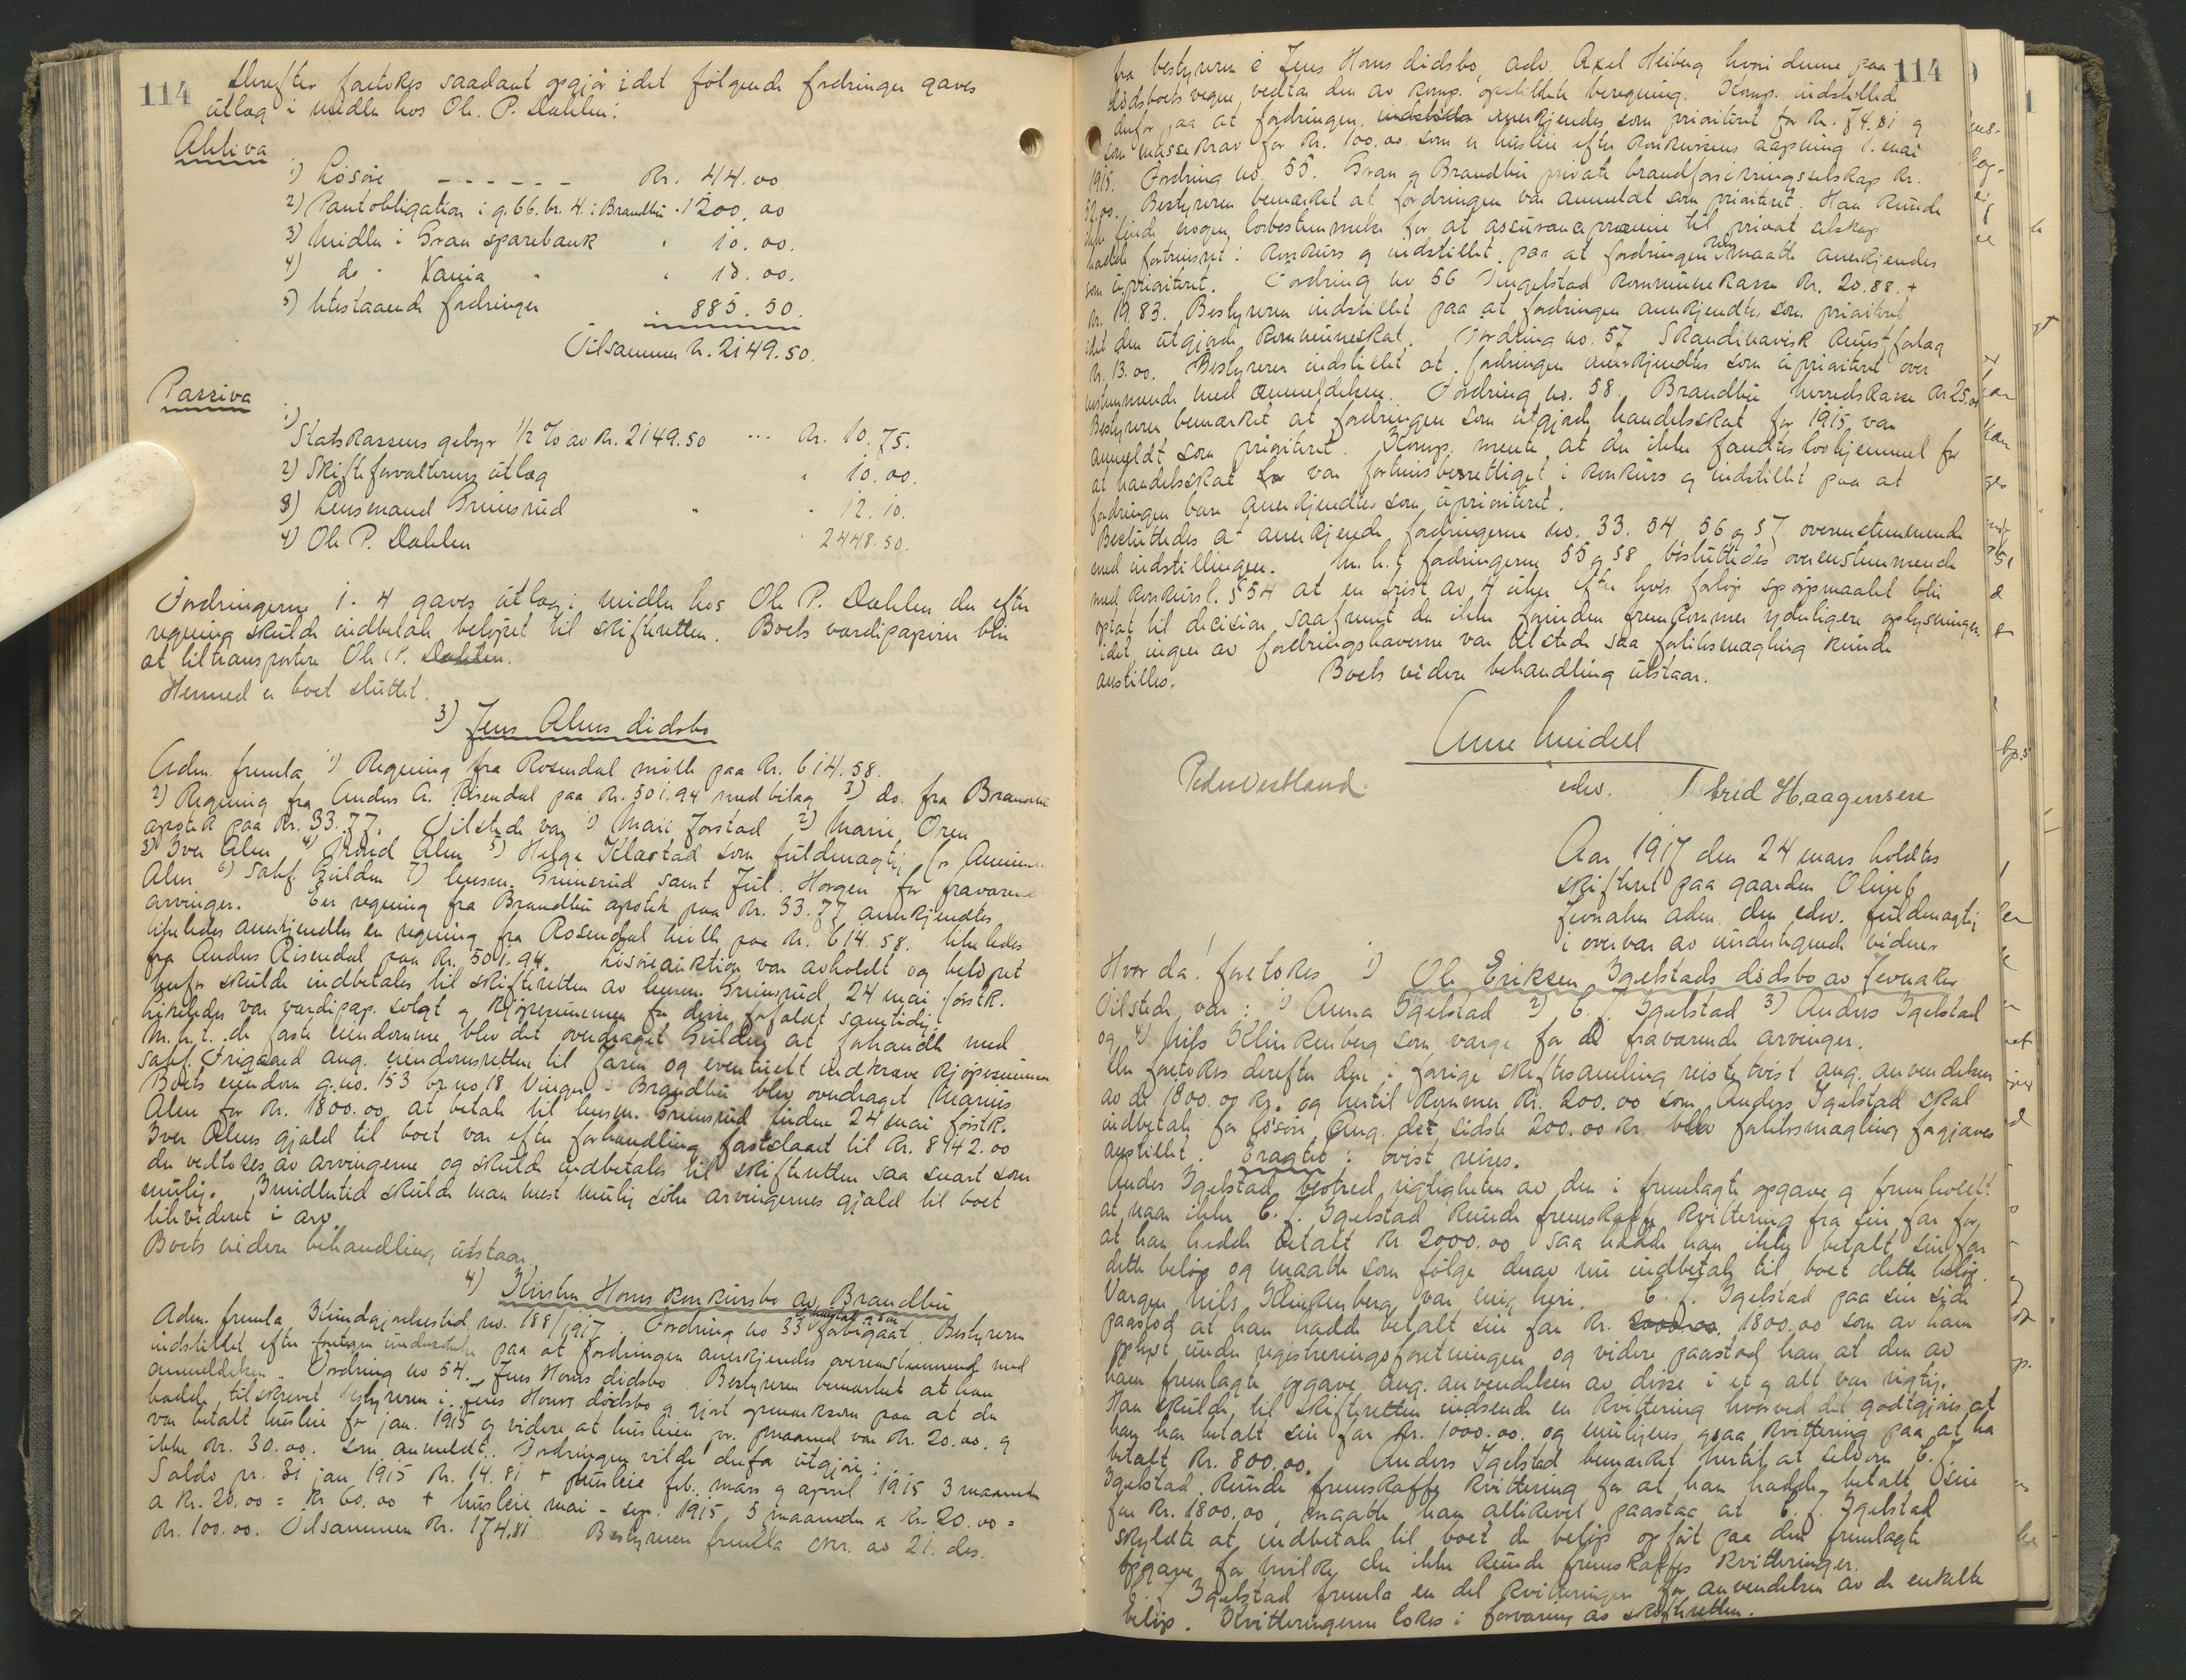 114
Derefter foretokes saadant opgjør idet følgende fordringer gaves
utlæg i midler hos Ole P. Dahlen:
Aktiva
1) Løsøre - - - - - - Kr. 44.00
2) Pantobligation i g. 66. br. 4. i Brandbu " 1200.00
3) Midler i Gran sparebank " 10.00.
4) do - Vania " " 10.00.
5) Utestaaende fordringer " 885.50.
Tilsammen kr. 2149.50.
Passiva
1) Statskassens gebyr 1/2 % av kr. 2149.50 ... kr. 10.75.
2) Skifteforvalterens utlæg " 10.00.
3) Lensmand Grinsrud " " 12.10.
4) Ole P. Dahlen " 2448.50.
Fordringerne 1-4 gaves utlæg i midler hos Ole P. Dahlen der efter
regning skulde indbetale beløpet til skifteretten. Boets værdipapirer blir
at tiltransportere Ole P. Dahlen.
Hermed er boet sluttet.
3) Jens Alms dødsbo
Adm. fremla 1) Regning fra Rosendal mølle paa kr. 614.58.
2) Regning fra Anders A. Risendal paa kr. 501.94 med bilag 3) do. fra Brandbu
apotek paa kr. 33.77. Tilstede var 1) Mari Jorstad 2) Marie Oren
3) Iver Alm 4) Trond Alm 5) Helge Klastad som fuldmægtig for
Alm 6) Sakf. Gulden 7) lensm. Grinsrud samt Jul. Horgen for fraværende
arvinger. En regning fra Brandbu apotek paa kr. 33.77 anerkjendtes
likeledes anerkjendtes en regning fra Rosendal mølle paa kr. 614.58. likeledes
fra Anders Risendal paa kr. 501.94. Løsøreauktion var avholdt og beløpet
herfor skulde indbetales til skifteretten av lensm. Grinsrud 24 mai førstk.
Likeledes var værdipap. solgt og kjøpesummen for disse forfaldt samtidig.
M.h.t. de faste eiendomme blev det overdraget Gulden at forhandle med
sakf. Frigaard ang. eiendomsretten til Jaren og eventuelt indkræve kjøpesummen
Boets eiendom g.no. 153 br.no 18 Vingen i Brandbu blev overdraget Marius
Alm for kr. 1800.00 at betale til lensm. Grinsrud inden 24 mai førstk.
Iver Alms gjæld til boet var efter forhandling fastslaaet til kr. 8942.00
der vedtokes av arvingerne og skulde indbetales til skifteretten saa snart som
mulig. Imidlertid skulde man mest mulig søke arvingernes gjæld til boet
likvideret i arv.
Boets videre behandling utstaar.
4) Kirsten Horns konkursbo av Brandbu
Adm. fremla Kundgjørelsestid. no. 188/1917. Fordring no 33 forbigaat. Bestyreren
indstillet efter paa at fordringen anerkjendes overensstemmend med
anmeldelsen. Fordring no 54. Jens Horns dødsbo. Bestyreren bemærket at han
hadde tilskrevet bestyreren i Jens Horns dødsbo og gjort opmerksom paa at der
var betalt husleie for jan. 1915 og videre at husleien pr. maaned var kr. 20.00. og
ikke kr. 30.00. som anmeldt. Fordringen vilde derfor utgjøre:
Saldo pr. 31 jan 1915 kr. 14.81 + husleie feb. mars og april 1915 3 maaneder
a kr. 20.00 = kr 60.00 + husleie mai - sep. 1915 5 maaneder a kr. 20.00 =
kr. 100.00. Tilsammen kr. 174.81. Bestyreren fremla skr. av 21. ds.
114
fra bestyreren i Jens Horns dødsbo, adv. Axel Heiberg hvori denne paa
dødsboets vegne vedtar den av komp. opstillede beregning. Komp. indstilled
derfor paa at fordringen anerkjendes som prioritert for kr. 74.81 og
som massekrav for kr. 100.00 som er husleie efter konkursens aapning 1. mai
1915. Fordring no. 55. Gran og Brandbu private brandforsikringsselskap kr.
52.00. Bestyreren bemærket at fordringen var anmeldt som prioriteret. Han kunde
ikke finde nogen lovbestemmelse for at assurancepræmie til privat selskap
hadde fortrinsret i konkurs og indstillet paa at fordringen maatte anerkjendes
som uprioriteret. Fordring no 56 Tingelstad kommunekasse kr. 20.88. +
kr. 19.83. Bestyreren indstillet paa at fordringen anerkjendtes som prioriteret
idet den utgjorde kommuneskat. Fordring no. 57 Skandinavisk Kunstforlag
kr. 13.00. Bestyreren indstillet at fordringen anerkjendtes som uprioritert over
ensstemmende med anmeldelsen. Fordring no. 58. Brandbu herredskasse kr 25.00
Bestyreren bemærket at fordringen som utgjorde handelsskat for 1915 var
anmeldt som prioriteret. Komp. mente at der ikke fandtes lovhjemmel for
at handelsskat var fortrinsberettiget i konkurs og indstillet paa at
fordringen bare anerkjendtes som uprioriteret.
Besluttedes at anerkjende fordringerne no. 33. 54, 56 og 57 overensstemmende
med indstillingen. M.h.t. fordringerne 55 og 58 besluttedes overensstemmende
med konkursl. § 54 at en frist av 4 uker efter hvis forløp spørsmaalet blir
optat til decision saafremt der ikke forinden fremkommer yderligere oplysninger
idet ingen av fordringshaverne var tilstede saa forliksmægling kunde
anstilles. Boets videre behandling utstaar.
Arne Meidell
edsv.
Peder Vestland.
Astrid Haagensen
Aar 1917 den 24 mars holdtes
skifteret paa gaarden Olimb
Jevnaker adm. den edsv. fuldmægtig
i overvær av undertegnede vidner
Hvor da! foretokes 1) Ole Eriksen Igelstads dødsbo av Jevnaker
Tilstede var: 1) Anna Igelstad 2) C. J. Igelstad 3) Anders Igelstad
og 4) Nils Klinkenberg som værge for de fraværende arvinger.
Der foretokes derefter den i forrige skiftesamling reiste tvist ang. anvendelsen
av de 1800.00 kr. og hertil kommer kr. 200.00 som Anders Igelstad skal
indbetale for løsøre. Ang. det sidste 200.00 kr. blev forliksmægling forgjæves
anstillet. Eragtet: tvist reises.
Anders Igelstad bestred rigtigheten av den i fremlagte opgave og fremholdt
at naar ikke C. J. Igelstad kunde fremskaffe kvittering fra sin far for
at han hadde betalt kr 2000.00 saa hadde han ikke betalt sin far
dette beløp og maatte som følge derav nu indbetale til boet dette beløp.
Værgen Nils Klinkenberg var enig heri. C. J. Igelstad paa sin side
paastod at han hadde betalt sin far kr. 2000.00 1800.00 som av ham
oplyst under registreringsforretningen og videre paastod han at den av
ham fremlagte opgave ang. anvendelsen av disse i et og alt var rigtig.
Han skulde til skifteretten indsende en kvittering hvorved det godtgjøres at
han har betalt sin far kr. 1000.00. og muligens ogsaa kvittering paa at ha
betalt kr. 800.00. Anders Igelstad bemærket hertil at selvom C. J.
Igelstad kunde fremskaffe kvittering for at han hadde betalt sin
far kr. 1800.00 maatte han allikevel paastaa at C. J. Igelstad
skyldte at indbetale til boet de beløp opført paa den fremlagte
opgave for hvilke der ikke kunde fremskaffes kvitteringer.
C. J. Igelstad fremla en del kvitteringer for anvendelsen av de enkelte
beløp. Kvitteringerne tokes i forvaring av skifteretten.